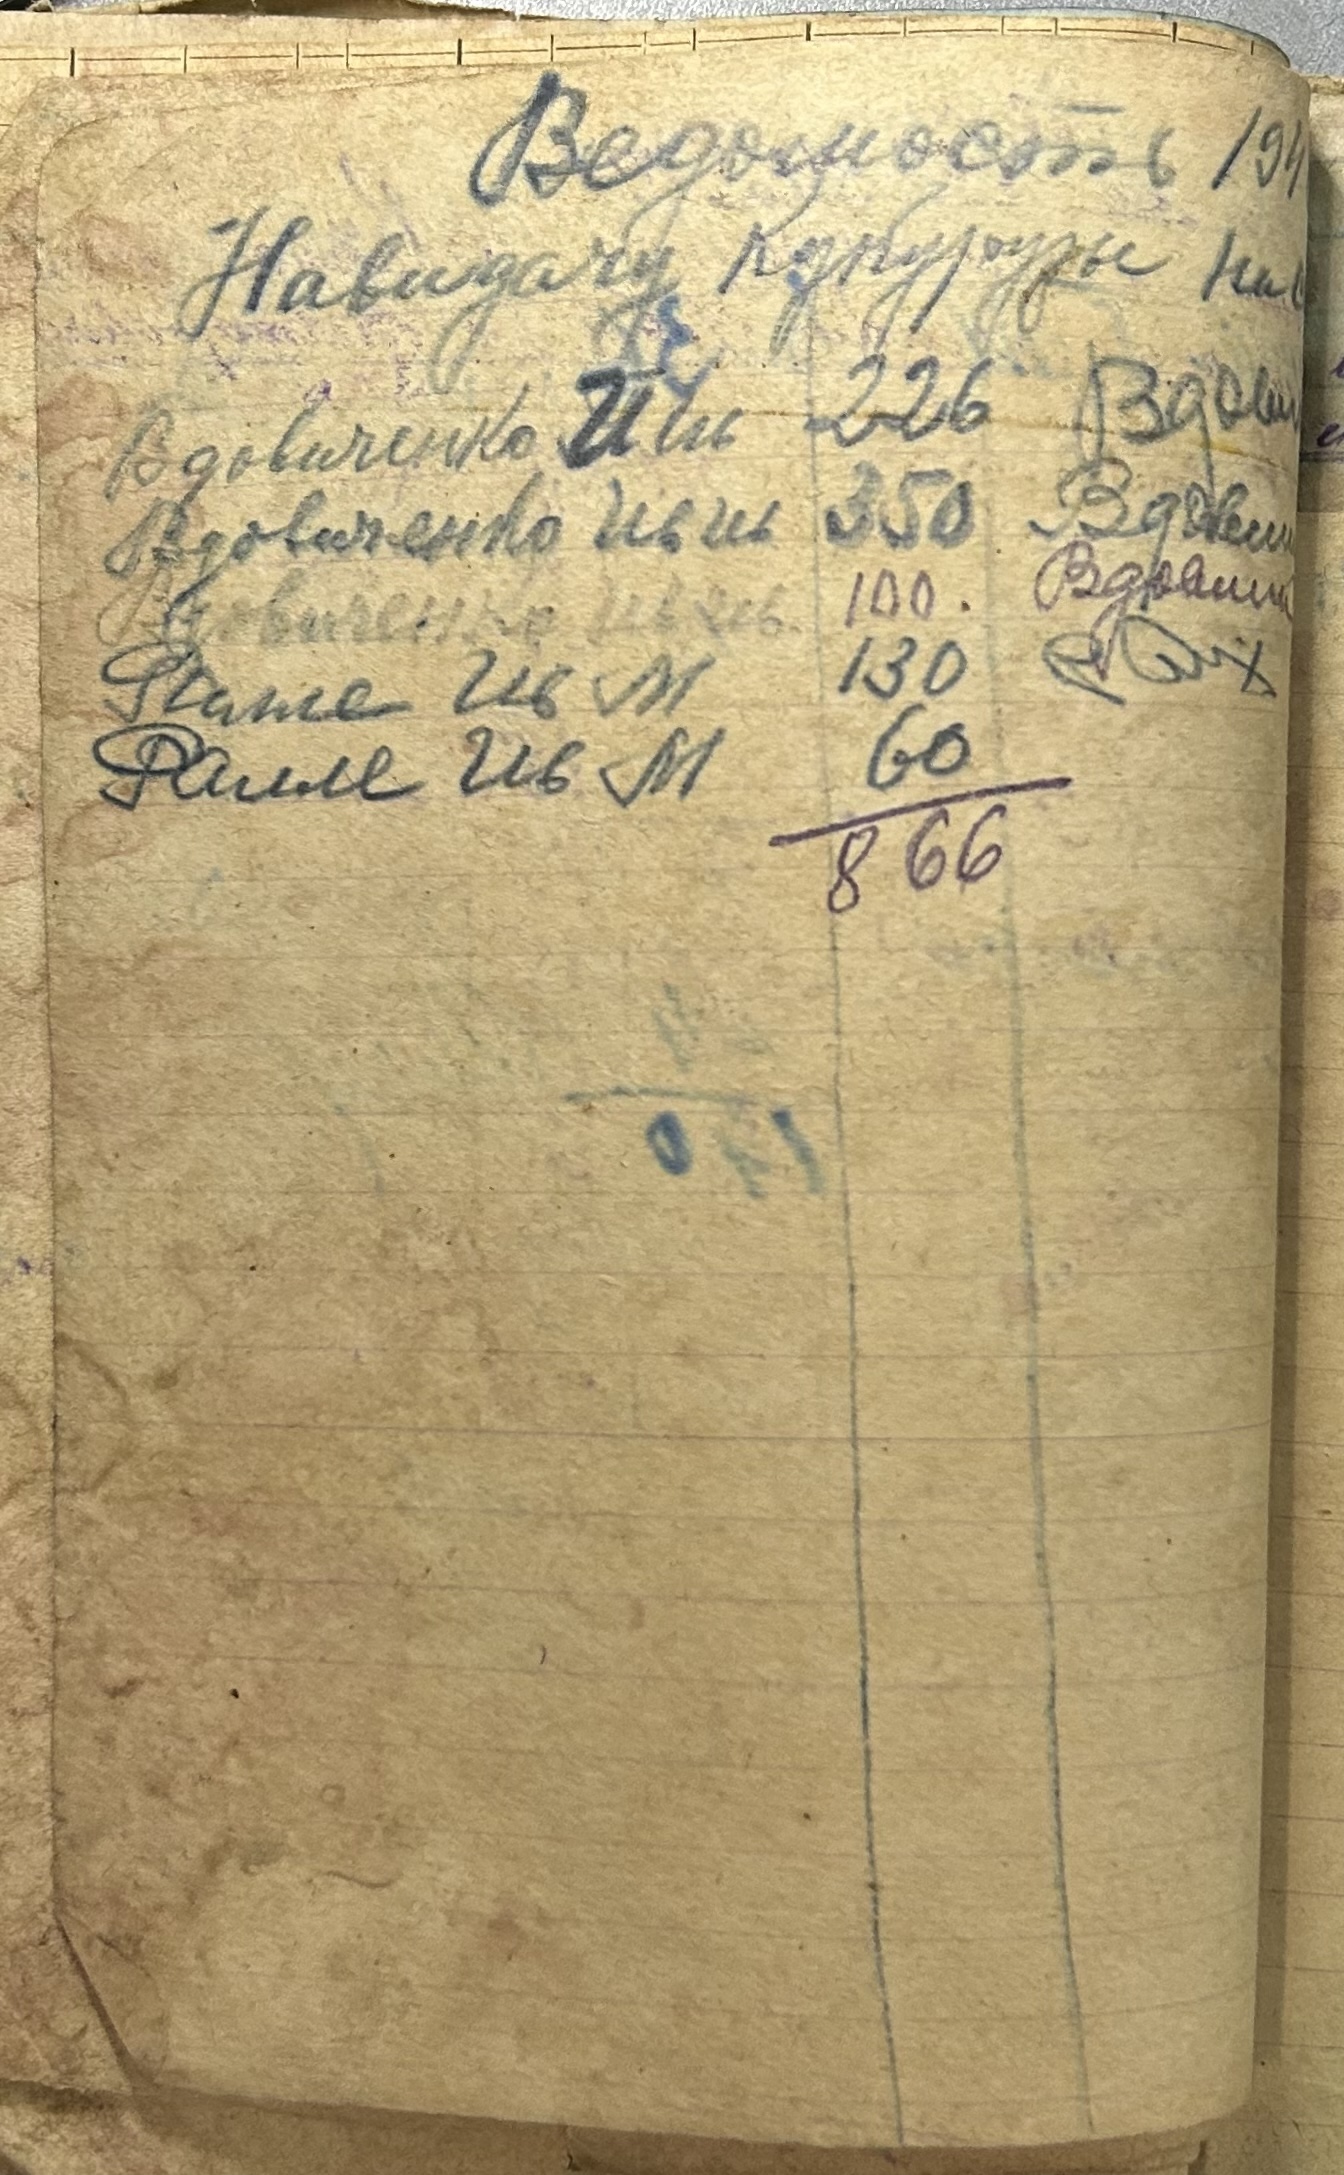 Ведомость 194
Навидачу Кукурузы на
Вдовиченко И ик 226 Вдови
Вдовиченко Ив ик 350 Вдови
Вдовиченко Ив ик. 100. Вдович
Ив М 130
Ралле Ив М 60
866
170